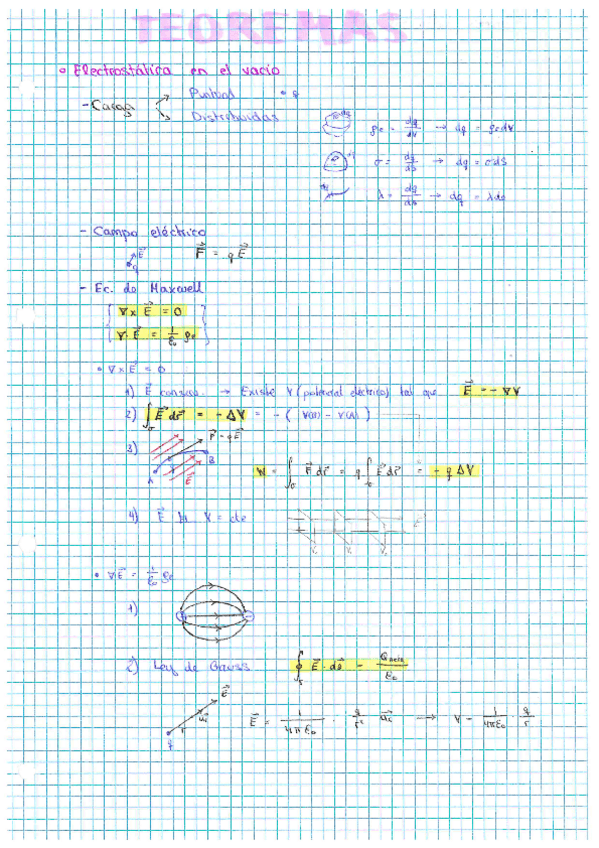 TEOREMAS
• Electrostática en el vacío
- Carga
Puntual • q
Distribuidas
ρe = dq/dV → dq = ρe dV
σ = dq/dS → dq = σ dS
λ = dq/ds → dq = λ ds
- Campo eléctrico
E q F = q E
- Ec. de Maxwell
∇ x E = 0
∇ · E = 1/ε₀ ρe
• ∇ x E = 0
1) E conserv. → Existe V (potencial eléctrico) tal que E = - ∇V
2) ∫ E dr = - ΔV = - ( V(B) - V(A) )
3) F = qE
A B E
W = ∫ F dr = q ∫ E dr = - q ΔV
4) E V = cte
• ∇E = 1/ε₀ ρe
1) + -
2) Ley de Gauss ∮ E · ds = Q/ε₀
E
r
q
E = 1/4πε₀ · q/r² → V = 1/4πε₀ · q/r